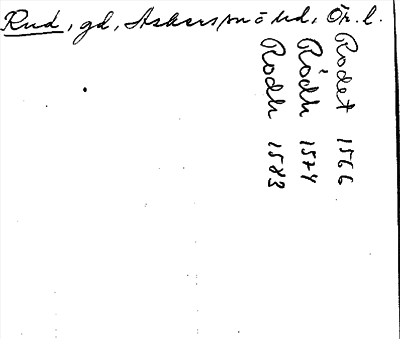 Rud, gd, Askers sn ö hd, Ör. l.
Rodet 1566
Rödh 1574
Rodh 1583